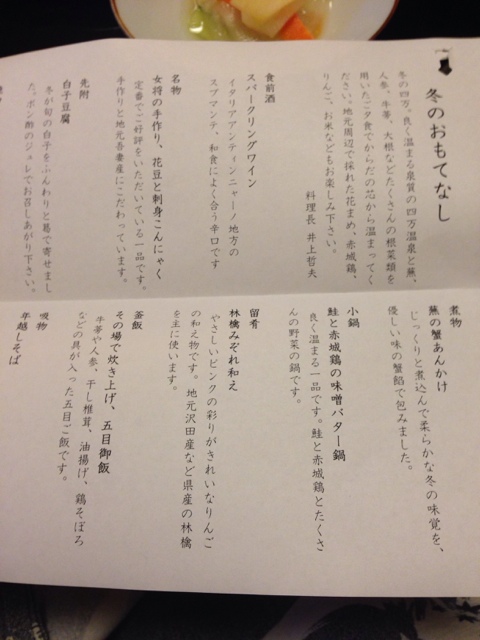 冬のおもてなし
冬の四万。良く温まる泉質の四万温泉と蕪、
人参、牛蒡、大根などたくさんの根菜類を
用いたご夕食でからだの芯から温まってく
ださい。地元周辺で採れた花まめ、赤城鶏、
りんご、お米などもお楽しみ下さい。
料理長 井上哲夫
食前酒
スパークリングワイン
イタリアアンティンニャーノ地方の
スプマンテ、和食によく合う辛口です
名物
女将の手作り、花豆と刺身こんにゃく
定番でご好評をいただいている一品です。
手作りと地元吾妻産にこだわっています。
先附
白子豆腐
冬が旬の白子をふんわりと葛で寄せまし
た。ポン酢のジュレでお召しあがり下さい。
煮物
蕪の蟹あんかけ
じっくりと煮込んで柔らかな冬の味覚を、
優しい味の蟹餡で包みました。
小鍋
鮭と赤城鶏の味噌バター鍋
良く温まる一品です。鮭と赤城鶏とたくさ
んの野菜の鍋です。
留肴
林檎みぞれ和え
やさしいピンクの彩りがきれいなりんご
の和え物です。地元沢田産など県産の林檎
を主に使います。
釜飯
その場で炊き上げ、五目御飯
牛蒡や人参、干し椎茸、油揚げ、鶏そぼろ
などの具が入った五目ご飯です。
吸物
年越しそば